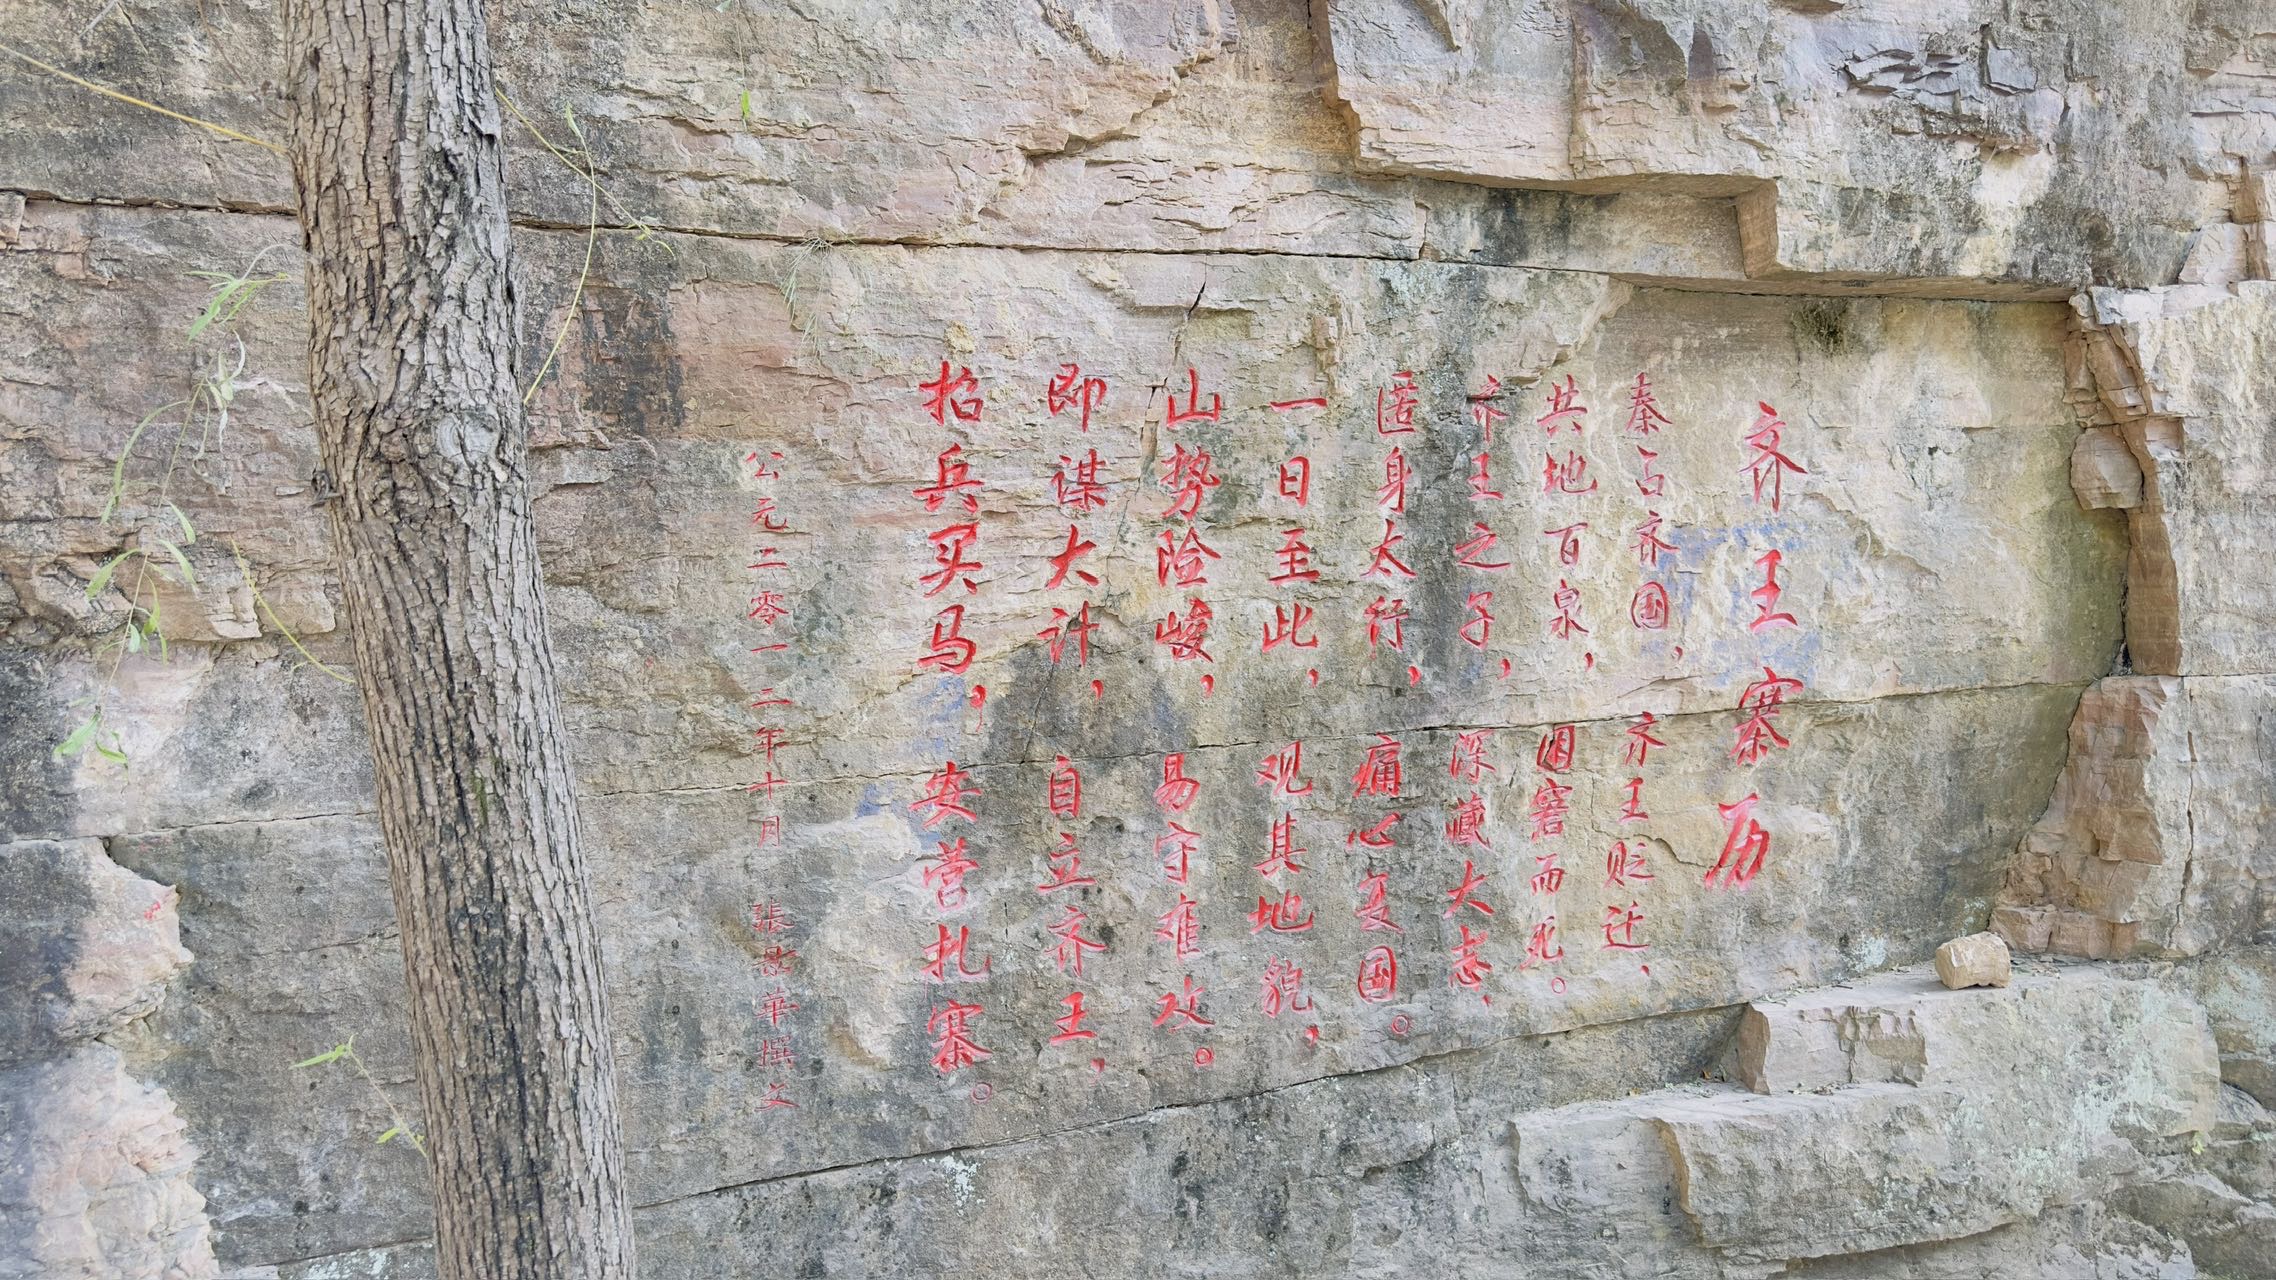 齐王寨历
秦占齐国，齐王贬迁、
共地百泉，困窘而死。
齐王之子，深藏大志、
匿身太行，痛心复国。
一日至此，观其地貌，
山势险峻，易守难攻。
即谋大计，自立齐王，
招兵买马，安营扎寨。
公元二零一二年十月 張 華撰文